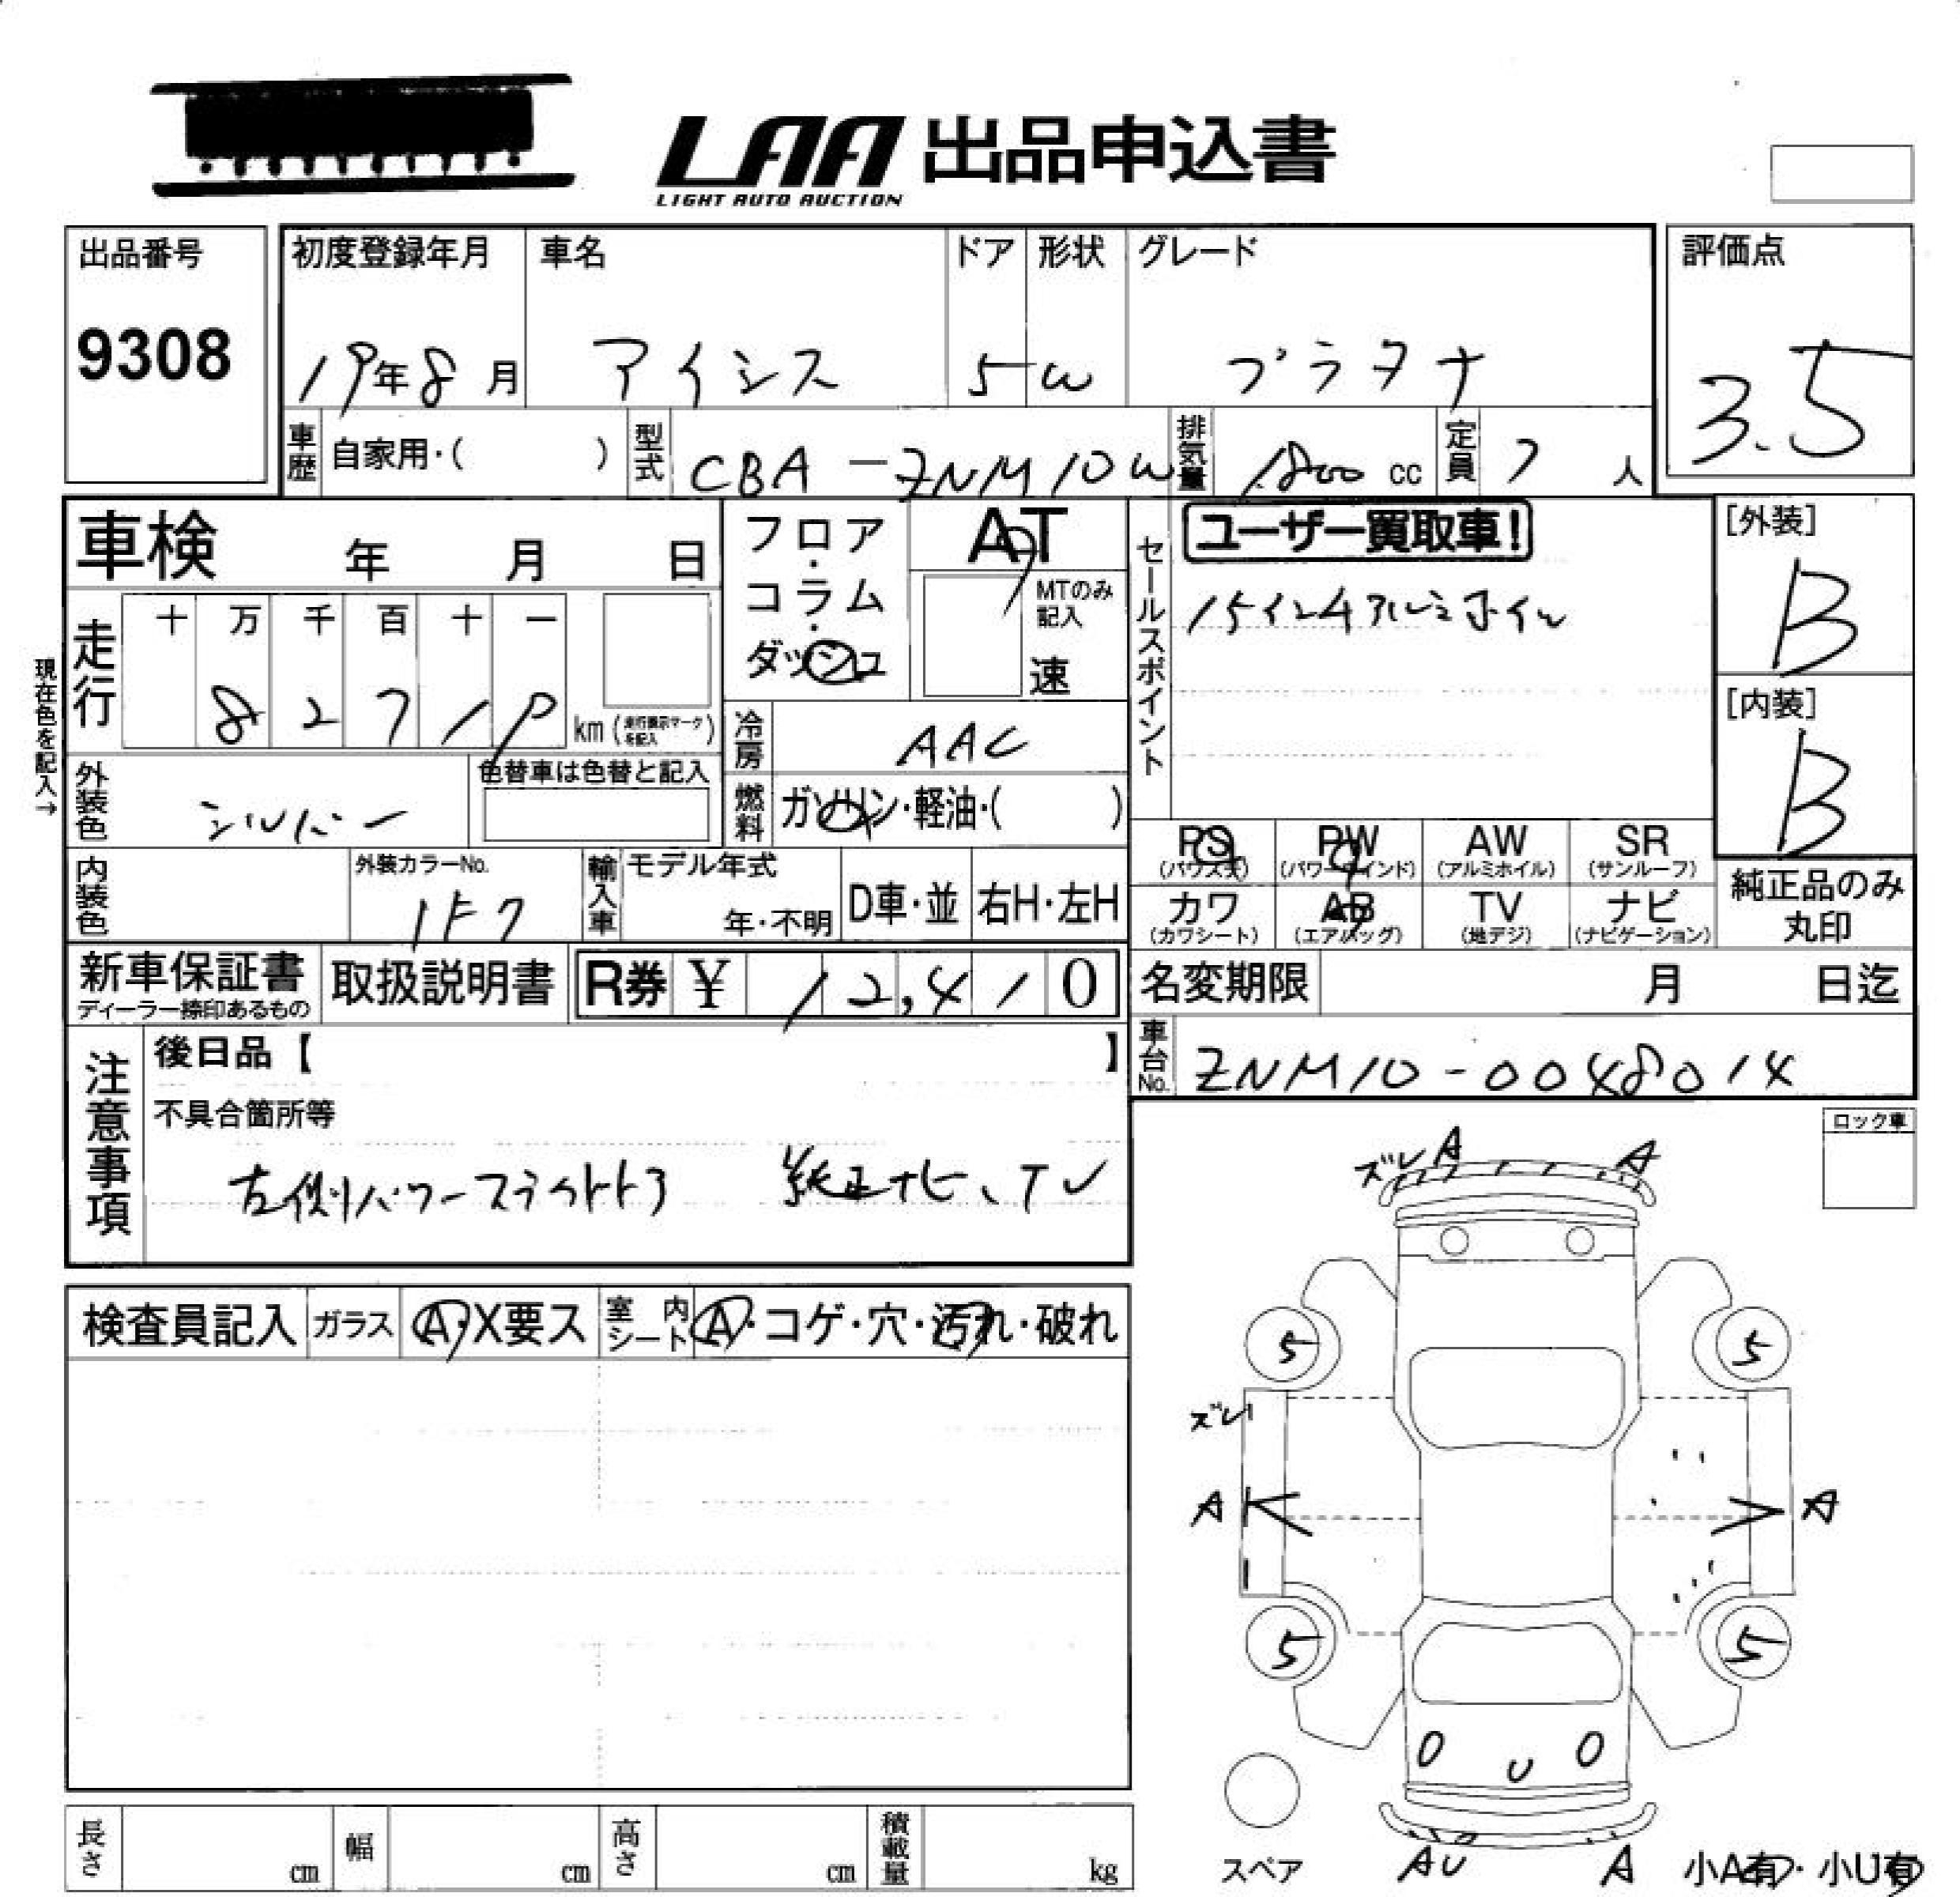 LAA 出品申込書
LIGHT AUTO AUCTION
出品番号
9308
初度登録年月 車名 ドア 形状 グレード
19年8月 アイシス 5 W プラタナ
評価点
3.5
車歴 自家用・( ) 型式 CBA-ZNM10W 排気量 1800 cc 定員 7 人
車検 年 月 日
フロア・コラム・ダッシュ
AT
MTのみ記入
速
セールスポイント
ユーザー買取車!
15インチアルミホイル
[外装]
B
[内装]
B
現在色を記入→
走行 十 万 千 百 十 一
8 2 7 1 9 km (走行表示マークを記入)
冷房 AAC
燃料 ガソリン・軽油・( )
外装色 シルバー 色替車は色替と記入
内装色 外装カラーNo. 1F7
輸入車 モデル年式
年・不明 D車・並 右H・左H
PS (パワステ) PW (パワーウインド) AW (アルミホイル) SR (サンルーフ)
カワ (カワシート) AB (エアバッグ) TV (地デジ) ナビ (ナビゲーション)
純正品のみ丸印
新車保証書 ディーラー捺印あるもの
取扱説明書
R券 ¥ 12,410
名変期限 月 日迄
車台No. ZNM10-0048014
注意事項
後日品【 】
不具合箇所等
左側パワースライドドア 純正ナビ、TV
ロック車
検査員記入 ガラス A・X要ス 室内シート A・コゲ・穴・汚れ・破れ
ズレ A A
5 5
ズレ
A A
5 5
U
スペア
AU A
小A有・小U有
長さ cm 幅 cm 高さ cm 積載量 kg